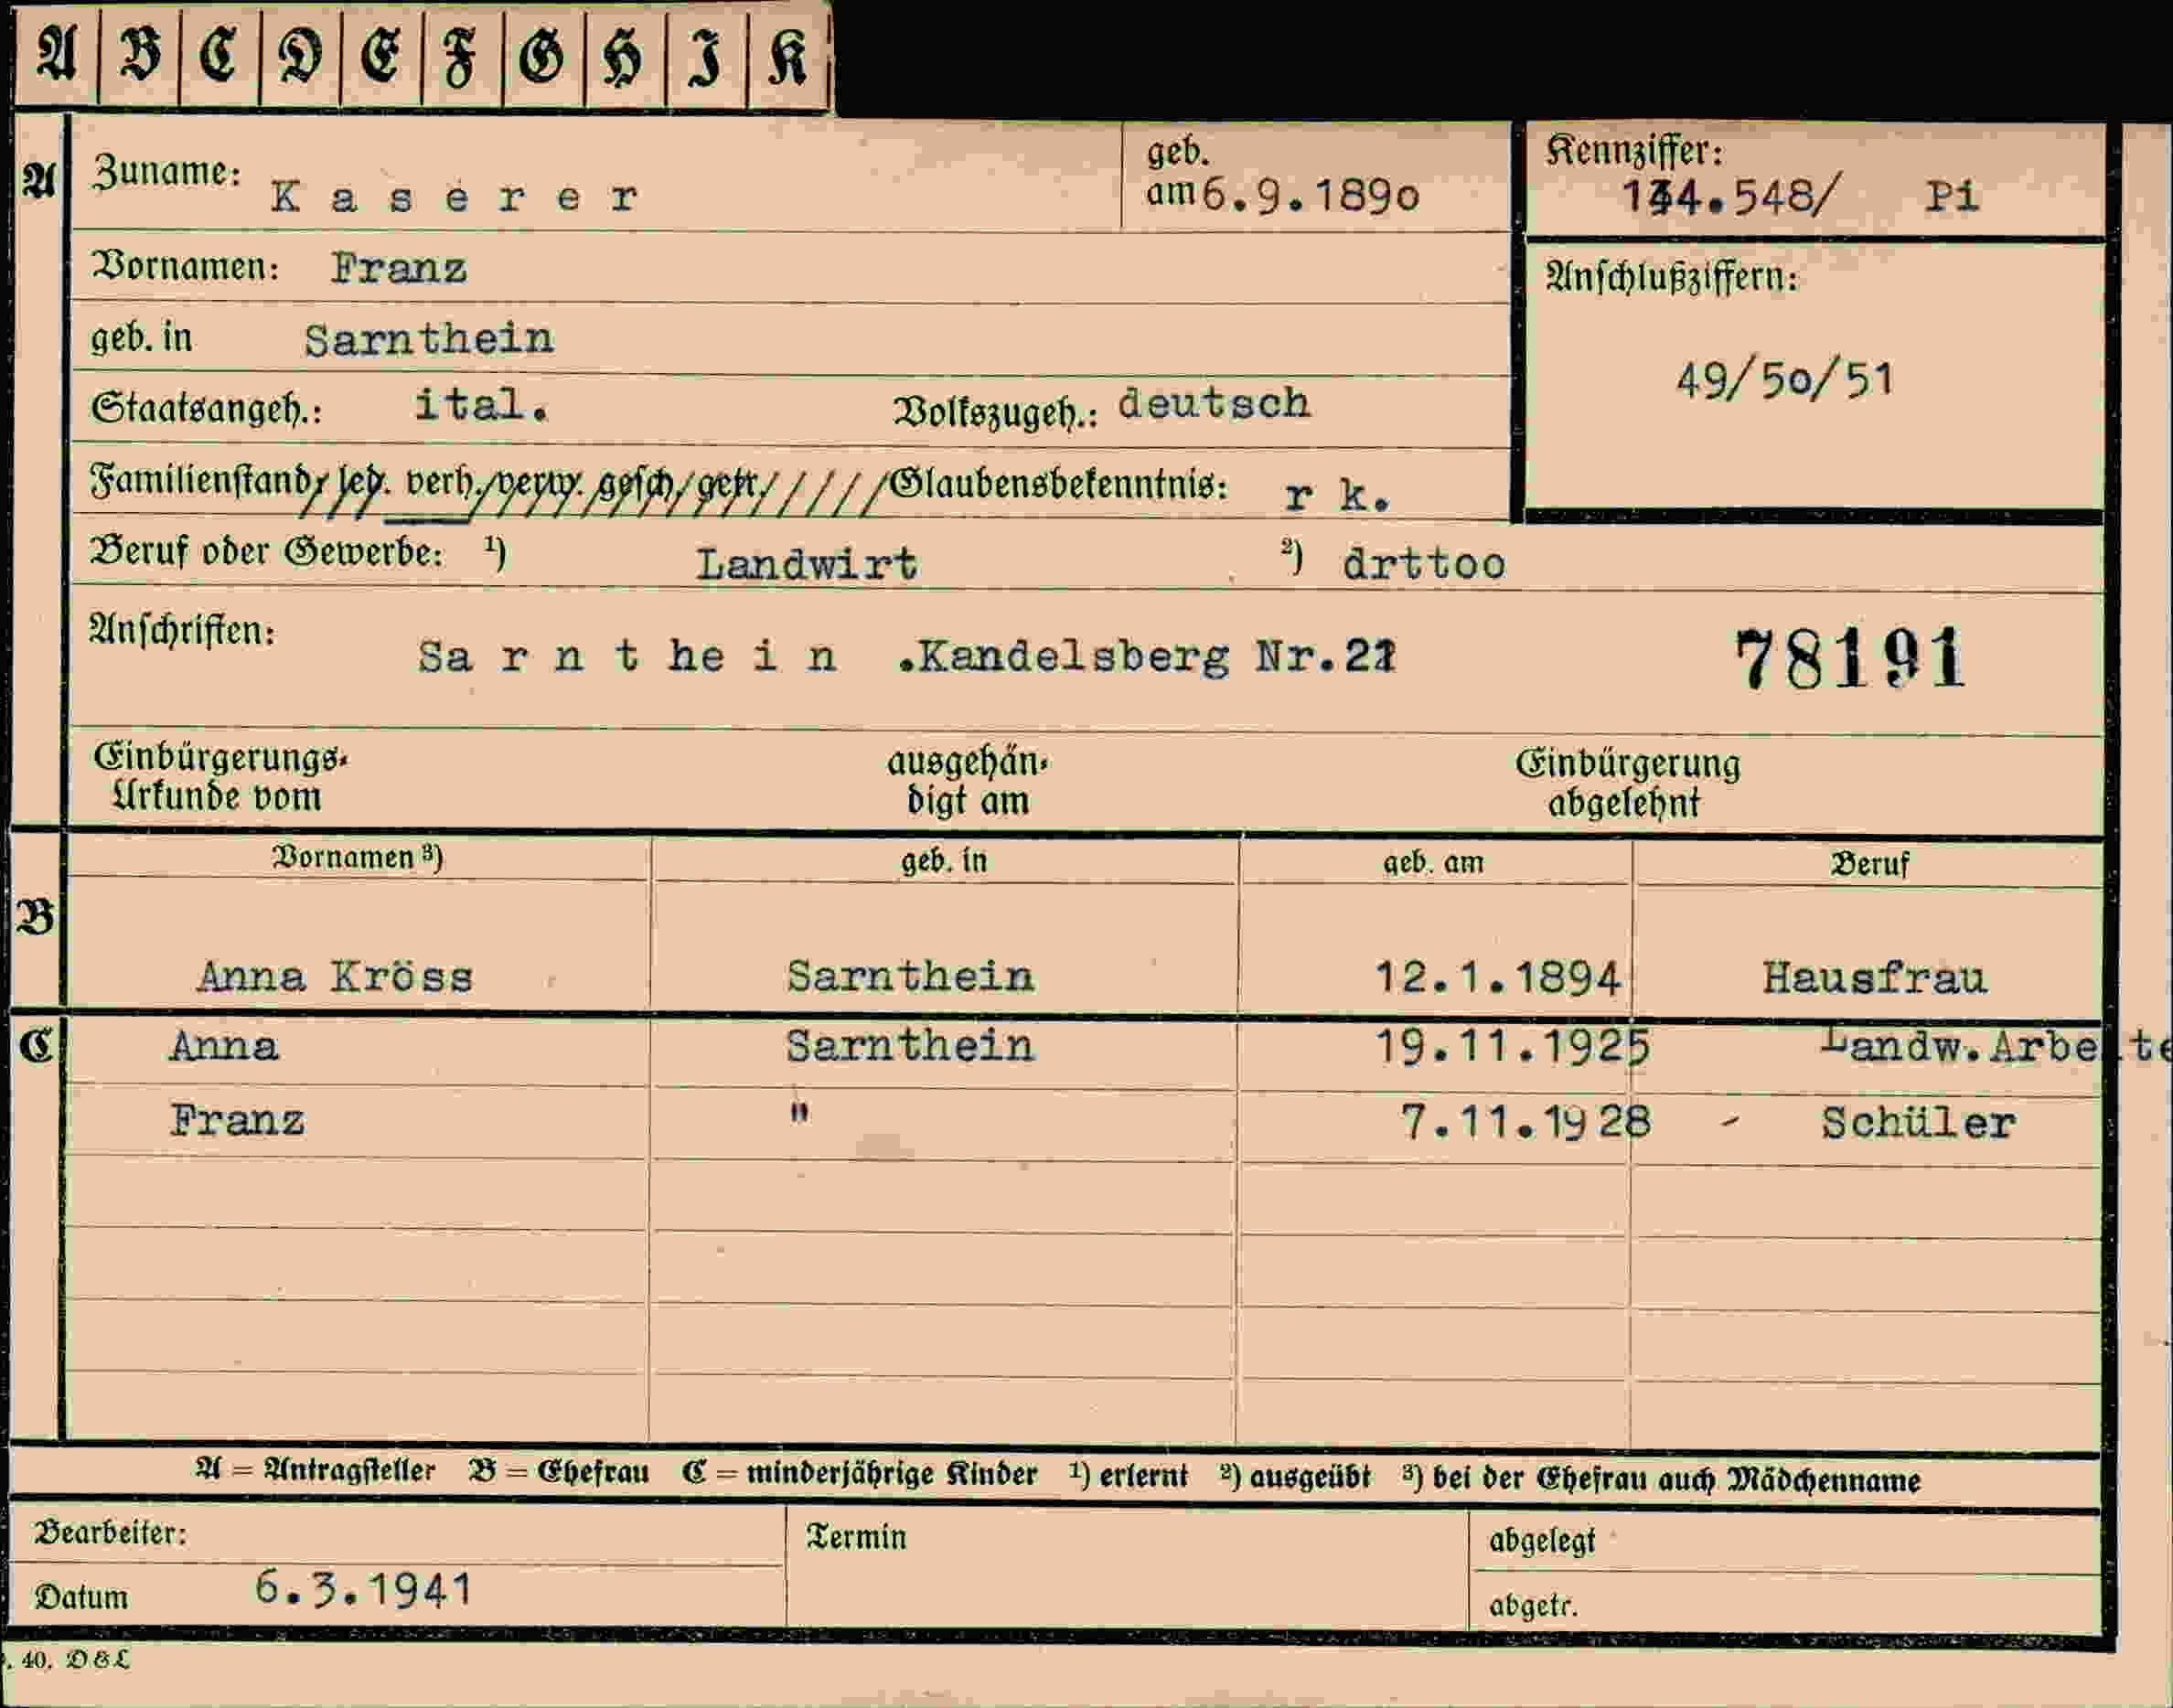 A B C D E F G H I K
A Zuname: Kaserer geb. am 6.9.1890 Kennziffer: 134.548/ Pi
Vornamen: Franz
Anschlußziffern:
geb. in Sarnthein
49/50/51
Staatsangeh.: ital. Volkszugeh.: deutsch
Familienstand led. verh. verw. gesch. getr. Glaubensbekenntnis: r k.
Beruf oder Gewerbe: ¹) Landwirt ²) drttoo
Anschriften: Sarnthein .Kandelsberg Nr. 78191
Einbürgerungs- ausgehän- Einbürgerung
Urkunde vom digt am abgelehnt
Vornamen ³) geb. in geb. am Beruf
B
Anna Kröss Sarnthein 12.1.1894 Hausfrau
C Anna Sarnthein 19.11.1925 Landw.Arbeite
Franz " 7.11.1928 - Schüler
A = Antragsteller B = Ehefrau C = minderjährige Kinder ¹) erlernt ²) ausgeübt ³) bei der Ehefrau auch Mädchenname
Bearbeiter: Termin abgelegt
Datum 6.3.1941 abgetr.
. 40. D&L